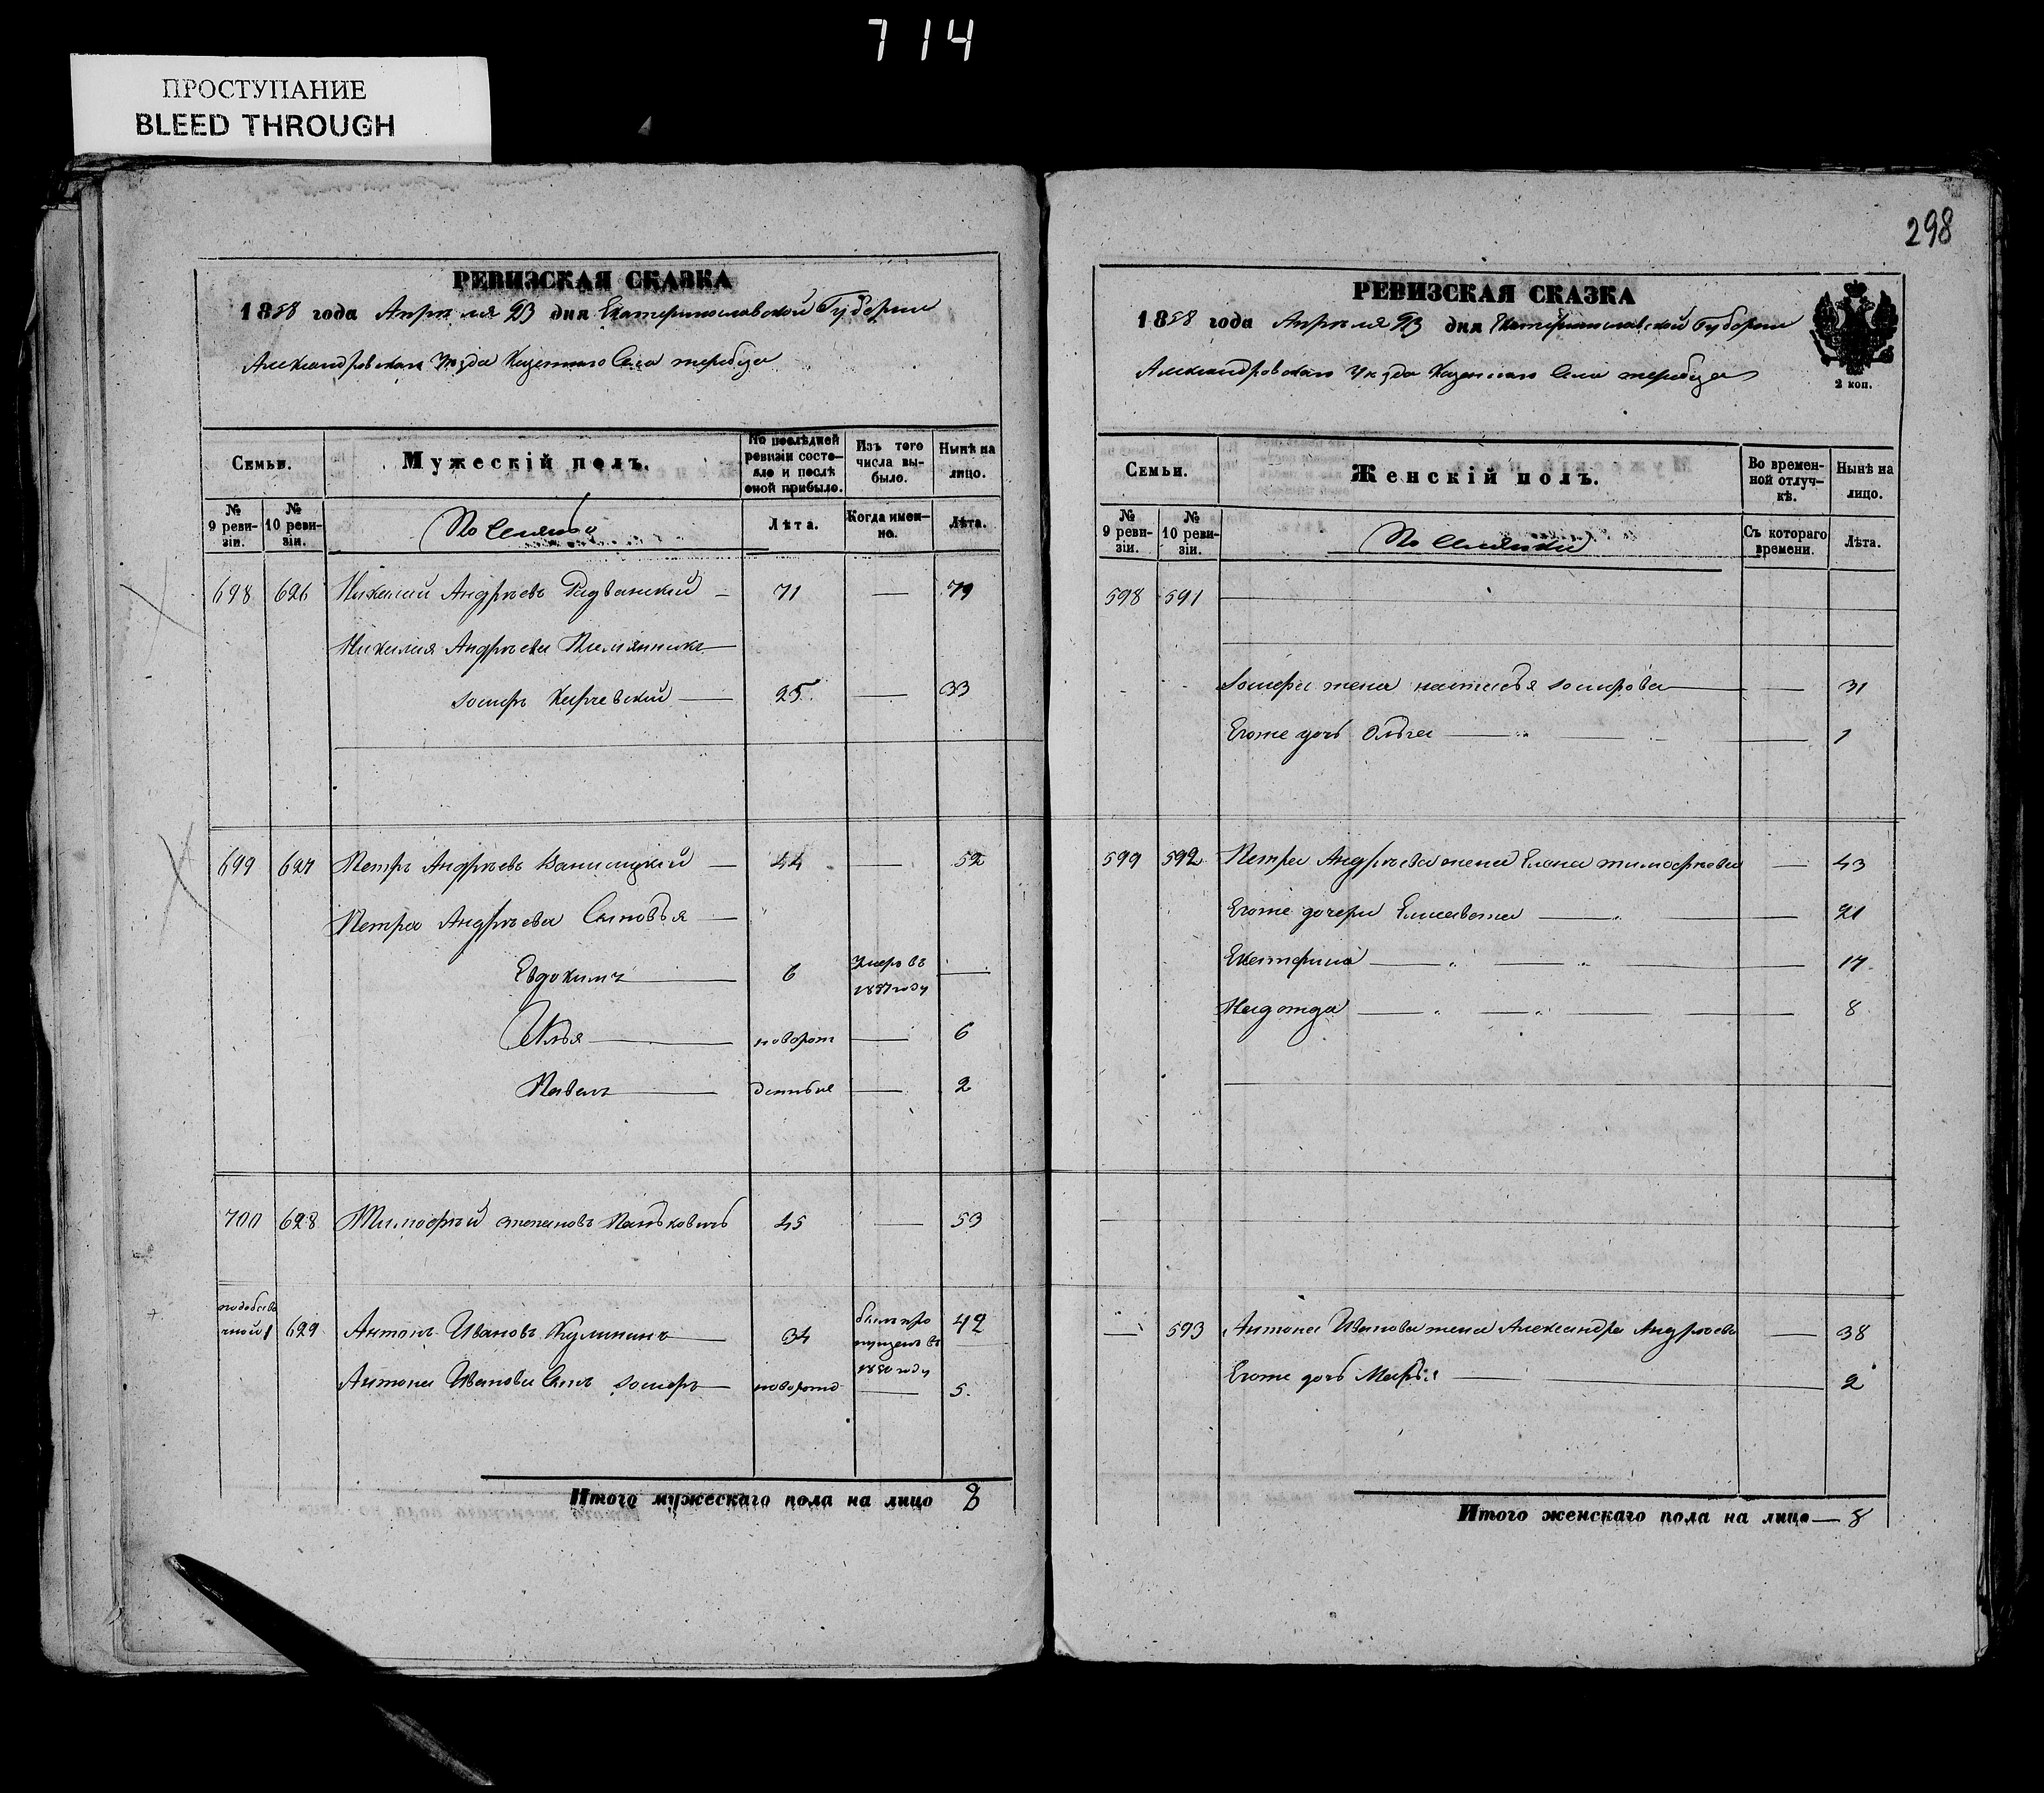 714
ПРОСТУПАНИЕ
BLEED THROUGH
298
РЕВИЗСКАЯ СКАЗКА
1858 года Апреля 23 дня Екатеринославской Губернии
Александровского Уезда Казенного Села
Семьи.
Мужескій полъ.
По послѣдней ревизіи состояло и послѣ оной прибыло.
Изъ того числа выбыло.
Нынѣ на лицо.
№ 9 ревизіи.
№ 10 ревизіи.
Лѣта.
Когда именно.
Лѣта.
698 626 Николай Андреевъ 71 — 79
Николая Андреева Племянникъ
25 — 33
699 627 Петръ Андреевъ 44 — 52
Петра Андреева Сыновья
Евдокимъ 6 умеръ въ
году
Илья новорож — 6
Павелъ — 2
700 628 Тимофей 45 — 53
629 Антонъ Ивановъ 34 был про 42
пущенъ въ
1850 году
Антона Иванова Сынъ — 5
Итого мужескаго пола на лицо 8
РЕВИЗСКАЯ СКАЗКА
1858 года Апреля 23 дня Екатеринославской Губернии
Александровского Уезда Казенного Села
2 коп.
Семьи.
Женскій полъ.
Во временной отлучкѣ.
Нынѣ на лицо.
№ 9 ревизіи.
№ 10 ревизіи.
Съ котораго времени.
Лѣта.
598 591
жена — 31
Его же дочь Ольга — 1
599 592 Петра Андреева жена Елена Тимофеева — 43
Его же дочери Елисавета — 21
Екатерина — 17
Надежда — 8
— 593 Антона Иванова жена Александра Андреева — 38
Его же дочь Марья — 2
Итого женскаго пола на лицо — 8